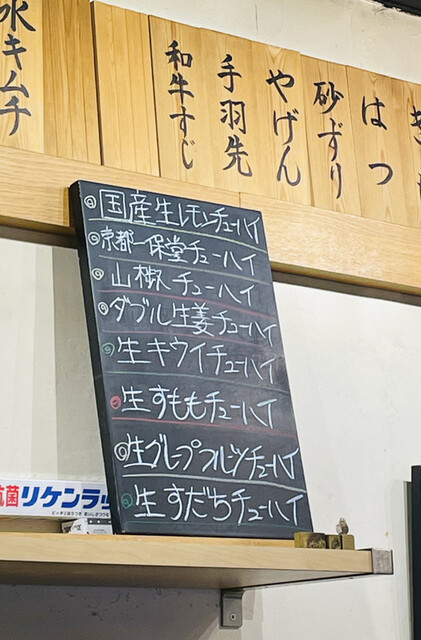 水キムチ
和牛すじ
手羽先
やげん
砂ずり
はつ
◎国産生レモンチューハイ
◎京都一保堂チューハイ
◎山椒チューハイ
◎ダブル生姜チューハイ
◎生キウイチューハイ
◎生すももチューハイ
◎生グレープフルーツチューハイ
◎生すだちチューハイ
抗菌リケンラッ